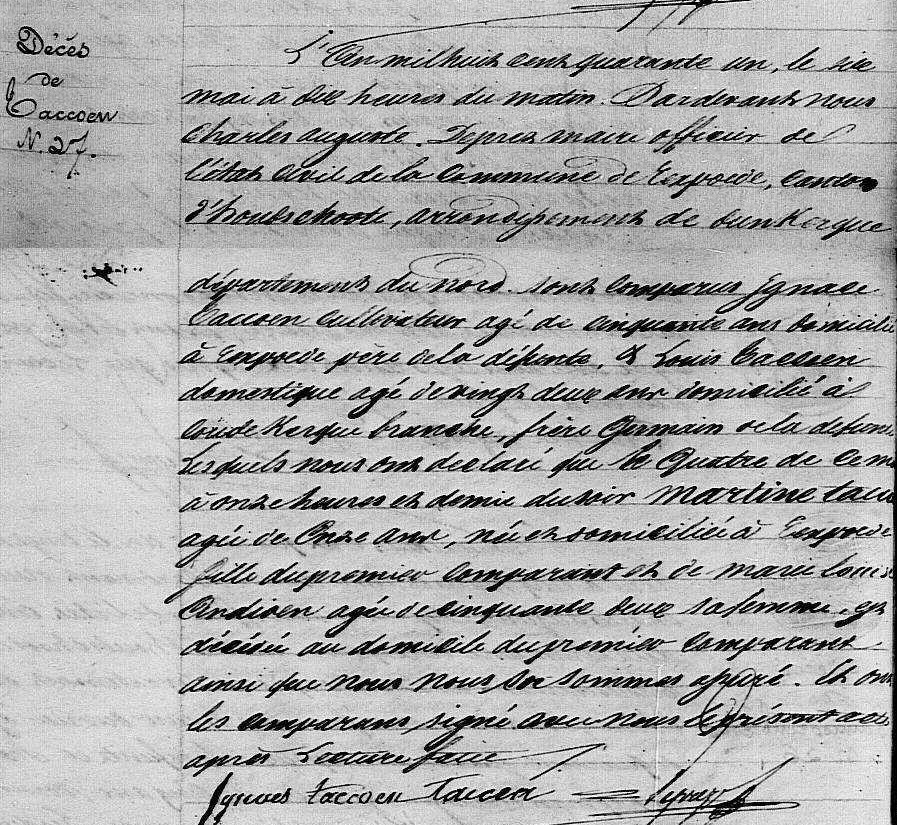 Décès
de
Taccoen
N. 27.
L'An mil huit cent quarante un, le six
mai à dix heures du matin. Pardevant nous
Charles auguste maire officier de
l'état civil de la Commune de Rexpoede, Canton
d'houdschoote, arrondissement de dunkerque
département du nord. sont Comparus Ignace
Taccoen Cultivateur agé de cinquante ans domicilié
à Rexpoede père de la défunte, & Louis Taccoen
domestique agé de vingt deux ans domicilié à
Coudekerque branche, frère Germain de la defunte
Lesquels nous ont declaré que le Quatre de ce m
à onze heures et demie du soir Martine tacc
agée de Onze ans, née et domiciliée à Rexpoede
fille du premier Comparant et de marie Louise
Andisen agée de cinquante deux sa femme, est
décédée au domicile du premier Comparant
ainsi que nous nous en sommes assuré. Et ont
les comparans signé avec nous le présent acte
après Lecture faite
Ignaes taccoen Taccoen